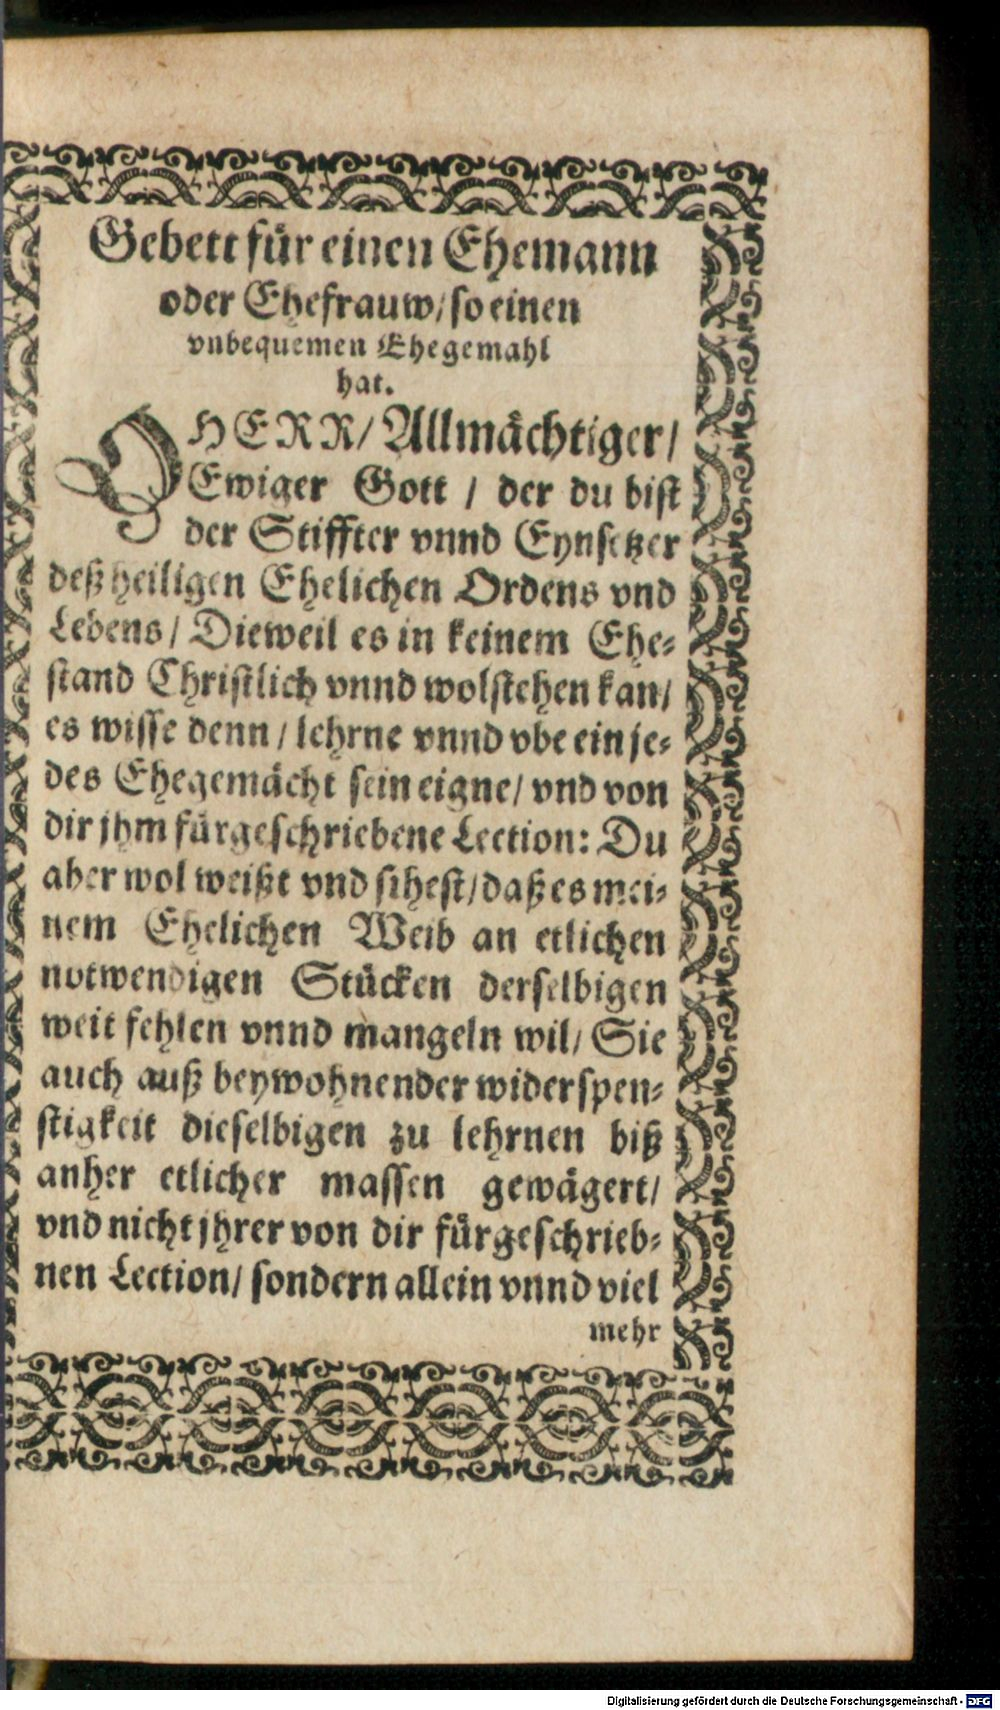 Gebett für einen Ehemann
oder Ehefrauw/ so einen
vnbequemen Ehegemahl
hat.
O HERR/ Allmächtiger/
Ewiger Gott / der du bist
der Stiffter vnnd Eynsetzer
deß heiligen Ehelichen Ordens vnd
Lebens/ Dieweil es in keinem Ehe-
stand Christlich vnnd wolstehen kan/
es wisse denn/ lehrne vnnd vbe ein je-
des Ehegemächt sein eigne/ vnd von
dir jhm fürgeschriebene Lection: Du
aber wol weißt vnd sihest/ daß es mei-
nem Ehelichen Weib an etlichen
notwendigen Stücken derselbigen
weit fehlen vnnd mangeln wil/ Sie
auch auß beywohnender widerspen-
stigkeit dieselbigen zu lehrnen biß
anher etlicher massen gewägert/
vnd nicht jhrer von dir fürgeschrieb-
nen Lection/ sondern allein vnnd viel
mehr
Digitalisierung gefördert durch die Deutsche Forschungsgemeinschaft - DFG